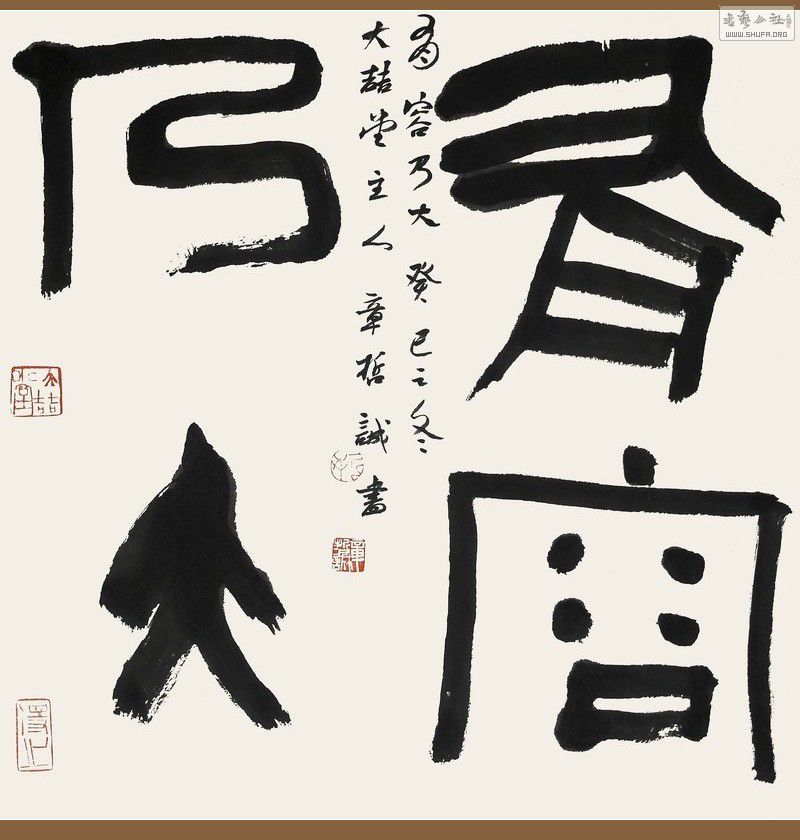 有容
乃大
有容乃大 癸巳之冬
大喆堂主人 章哲誠書
書藝公社
WWW.SHUFA.ORG